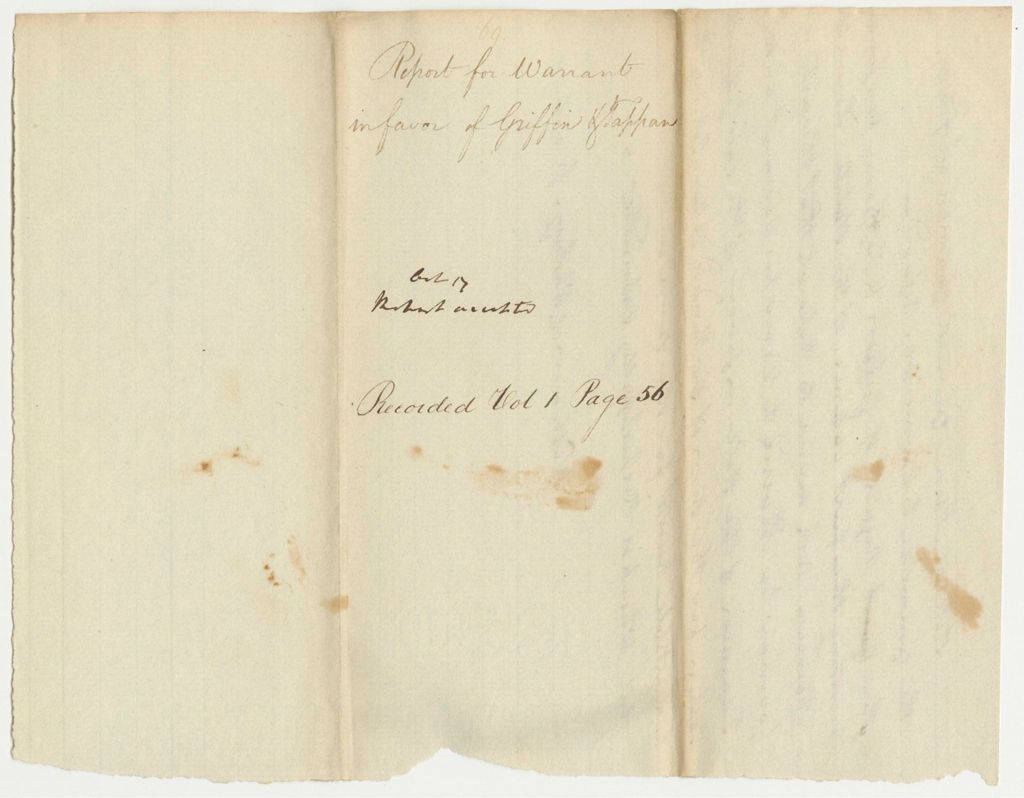 69.
Report for Warrant
in favor of Griffin & Tappan
Oct 17
accepted
Recorded Vol 1 Page 56